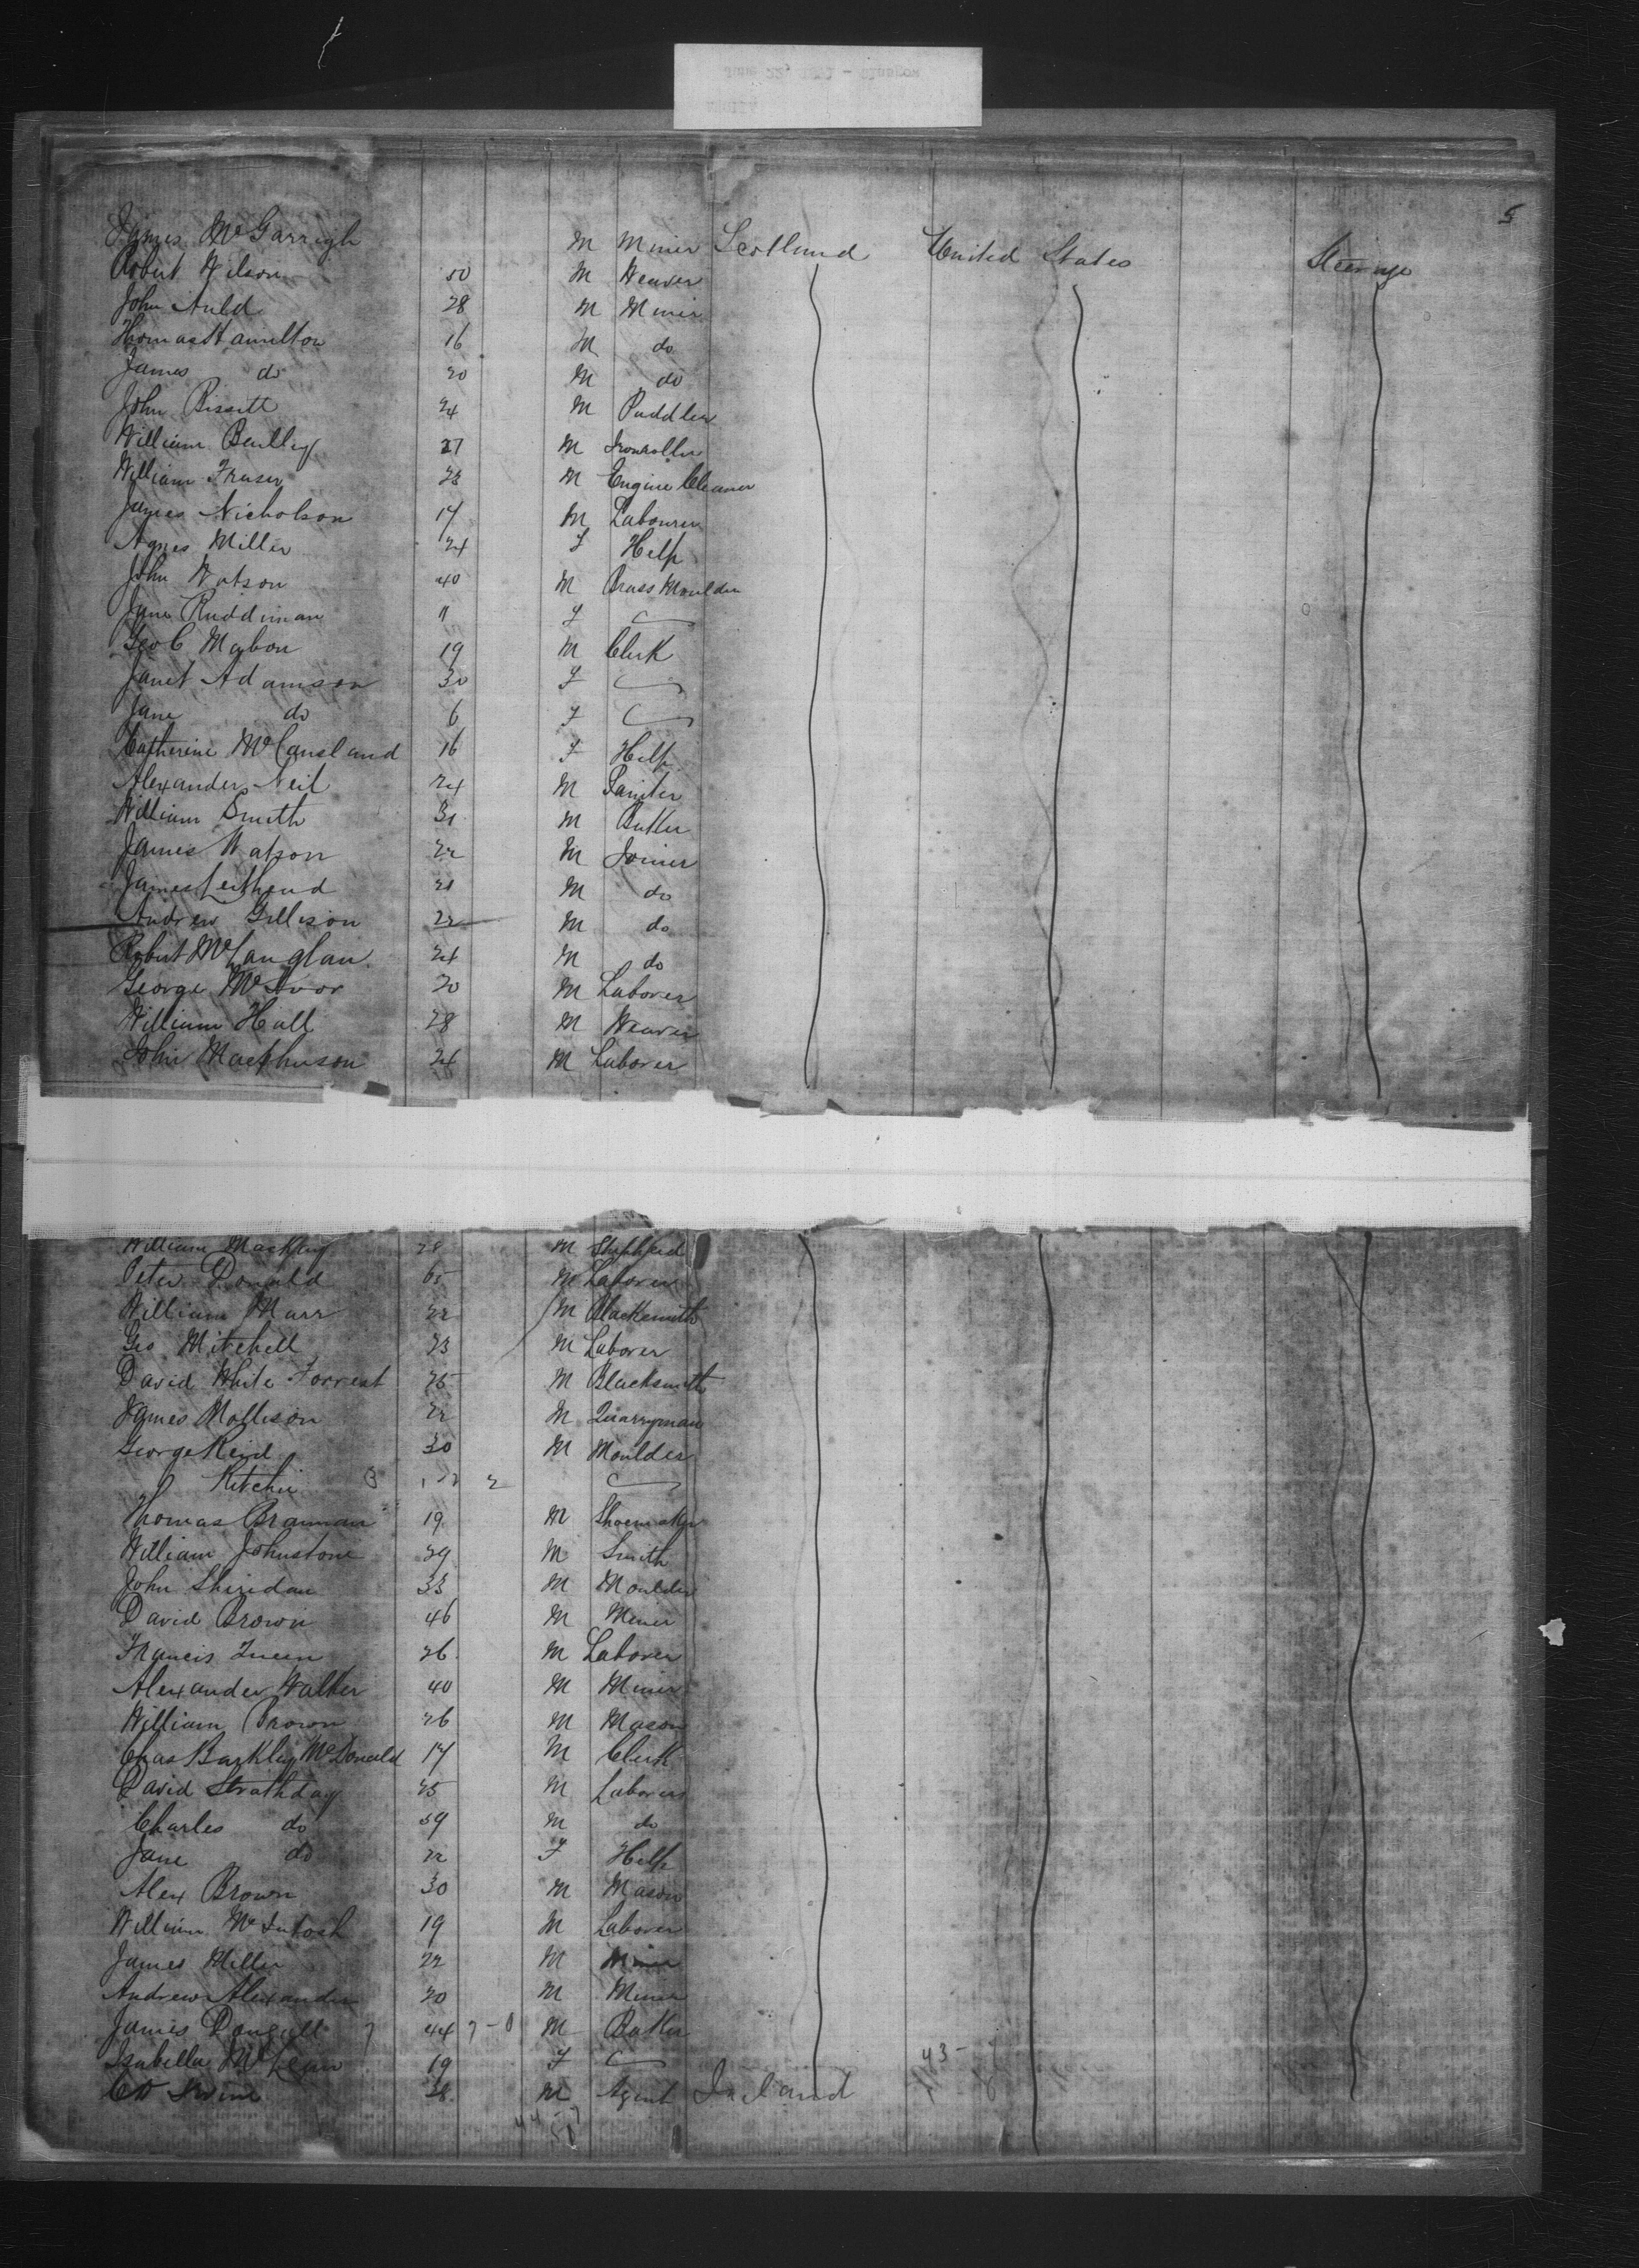 5
James McGarrigh M Miner Scotland United States Steerage
Robert Wilson 50 M Weaver
John Auld 28 M Miner
Thomas Hamilton 16 M do
James do 20 M do
John Bissitt 24 M Puddler
William Bentley 27 M Ironroller
William Fraser 28 M Engine Cleaner
James Nicholson 17 M Labourer
Agnes Miller 24 F Help
John Watson 40 M Brass Moulder
Jane Ruddiman 11 F
Geo C Mabon 19 M Clerk
Janet Adamson 30 F
Jane do 6 F
Catherine McCausland 16 F Help
Alexander Neil 24 M Painter
William Smith 31 M Butler
James Watson 22 M Joiner
James Leithead 21 M do
Andrew Gillison 22 M do
Robert McLanglan 24 M do
George McIvor 20 M Laborer
William Hall 28 M Weaver
John Macpherson 24 M Laborer
William Mackay 28 M Shepherd
Peter Donald 65 M Laborer
William Marr 22 M Blacksmith
Geo Mitchell 23 M Laborer
David White Forrest 25 M Blacksmith
James Mollison 22 M Quarryman
George Reid 30 M Moulder
Ritchie 2
Thomas Brannan 19 M Shoemaker
William Johnstone 29 M Smith
John Sheridan 33 M Moulder
David Brown 46 M Miner
Francis Queen 26 M Laborer
Alexander Walker 40 M Miner
William Brown 26 M Mason
Chas Barkley McDonald 17 M Clerk
David Strathday 25 M Laborer
Charles do 59 M do
Jane do 22 F Help
Alex Brown 30 M Mason
William McIntosh 19 M Laborer
James Miller 22 M Miner
Andrew Alexander 20 M Miner
James Dougall 7 44 7-0 M Baker
Isabella McLean 19 F 43
Irvine 28 M Agent Ireland